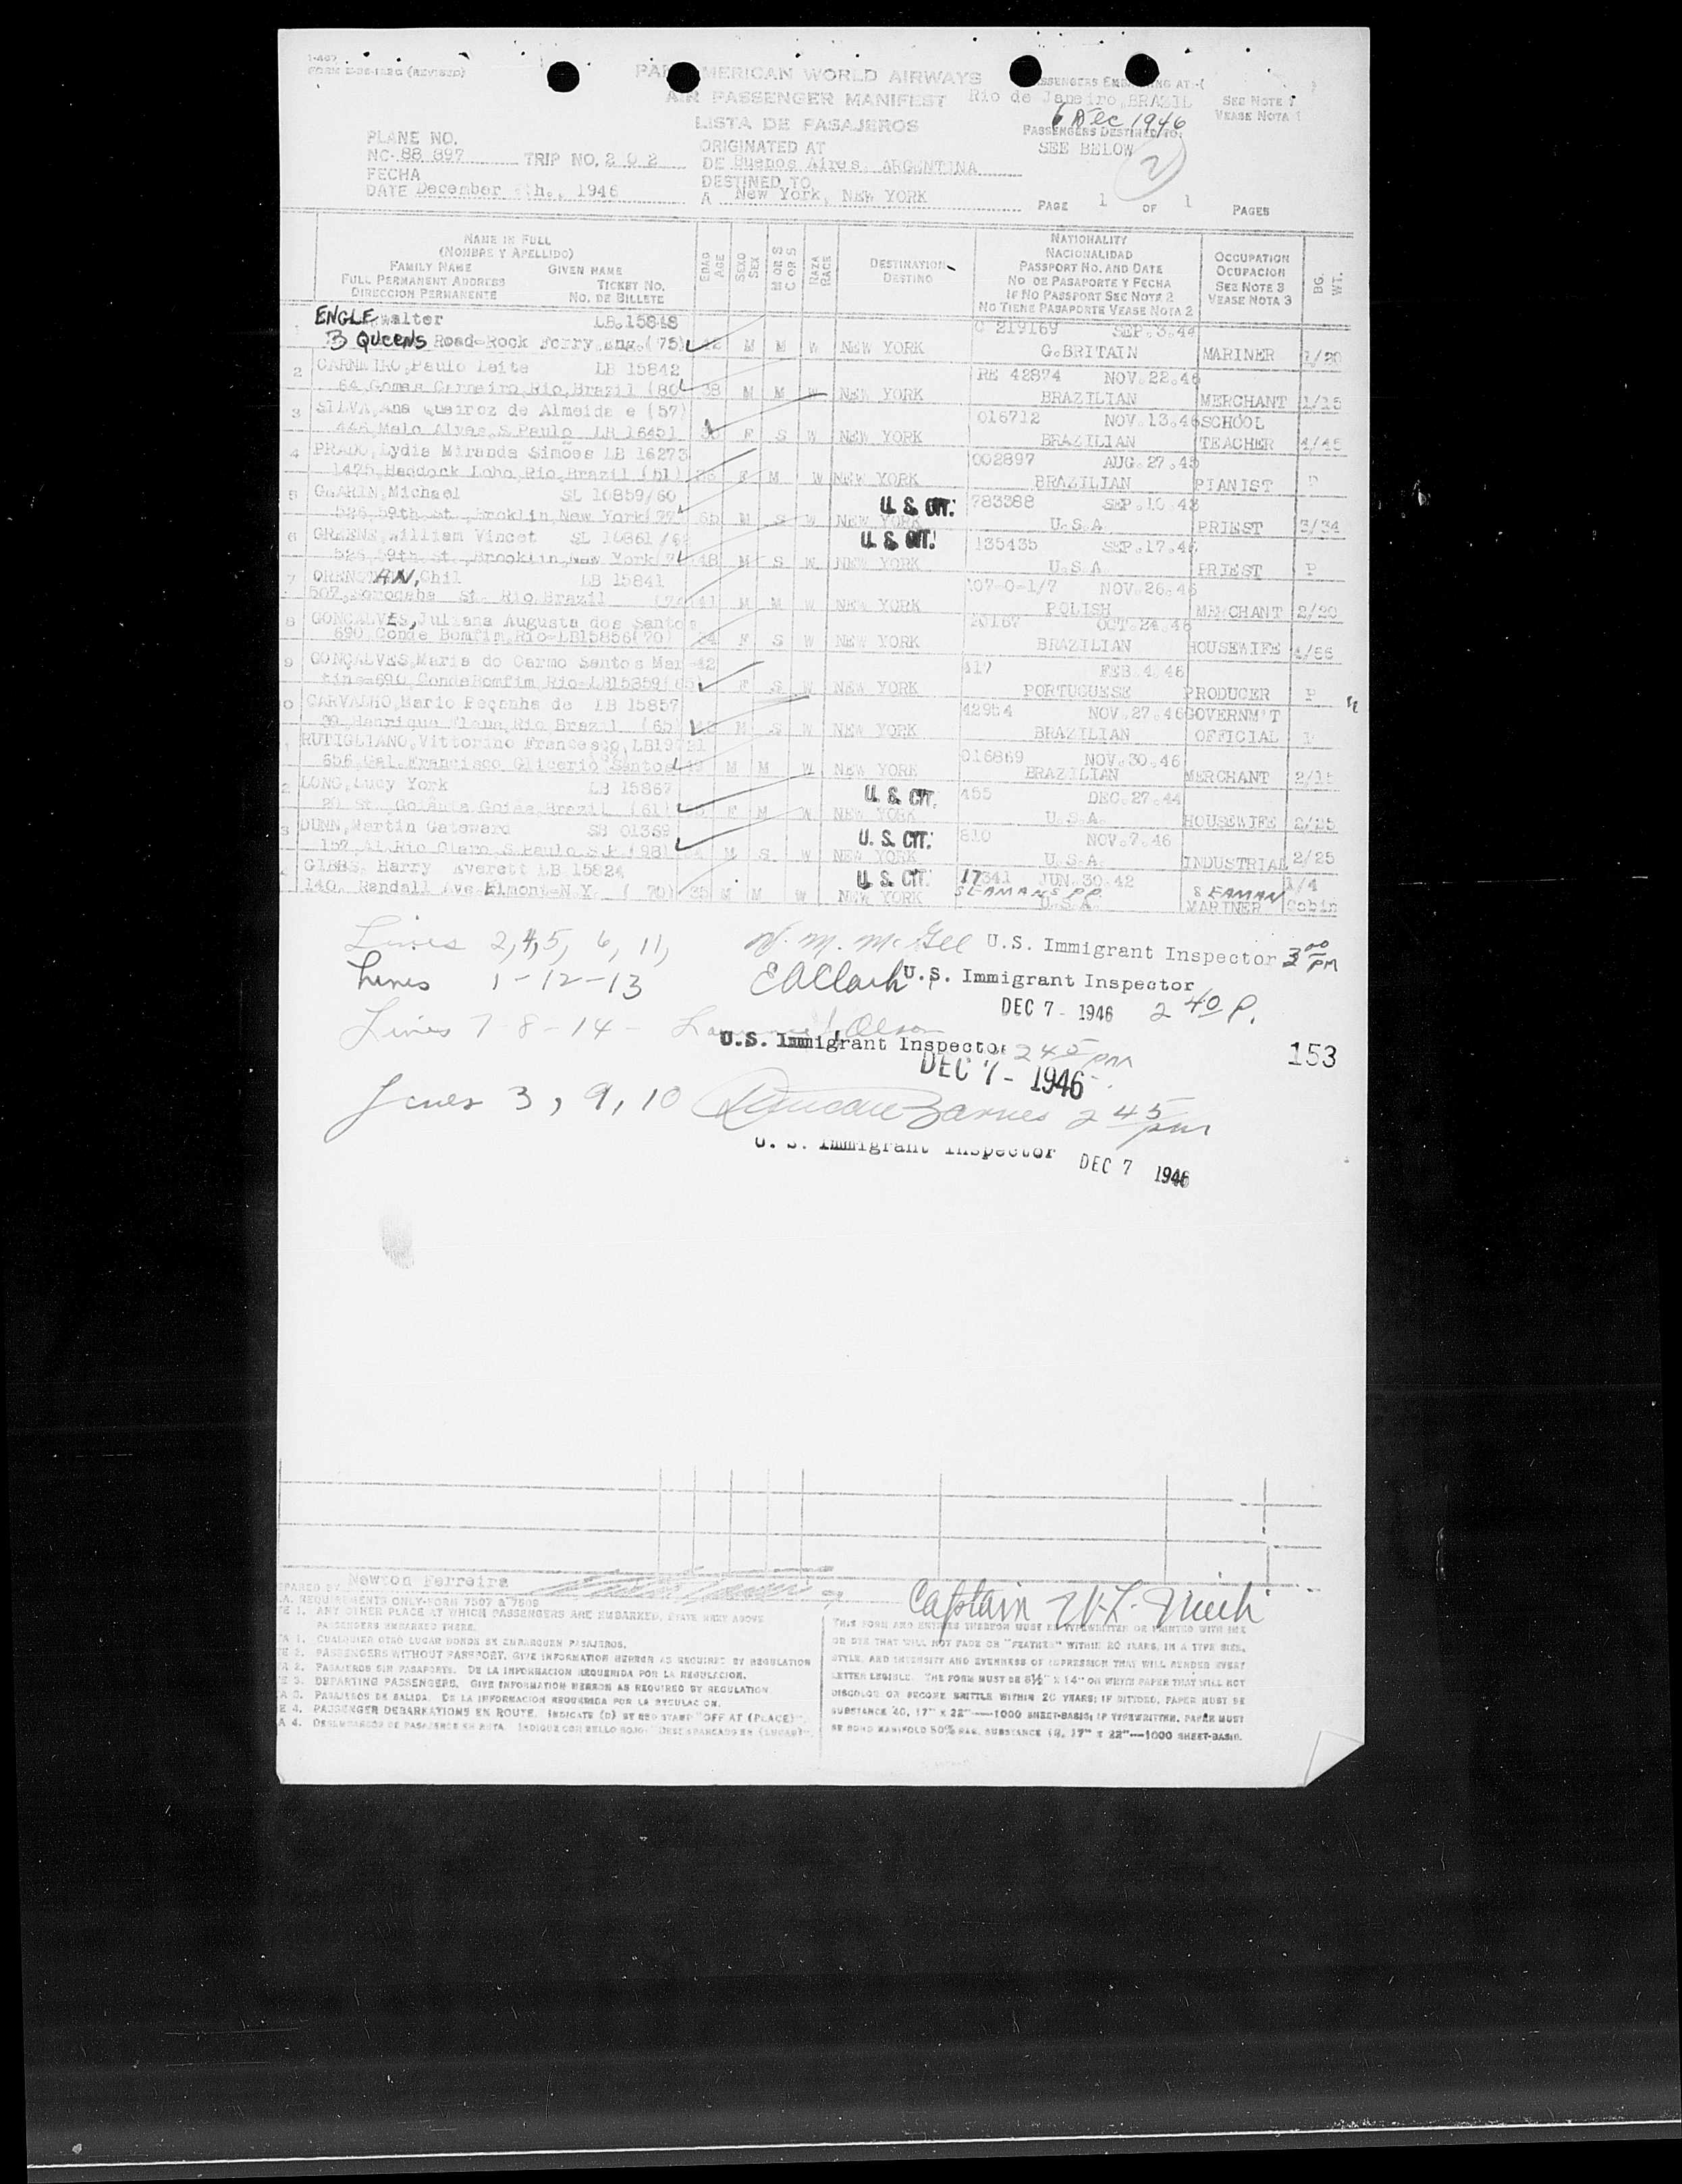 I-467
FORM (REVISED)
PAN AMERICAN WORLD AIRWAYS
AIR PASSENGER MANIFEST
LISTA DE PASAJEROS
PASSENGERS EMBARKING AT-(
Rio de Janeiro, BRAZIL
6 Dec 1946
PASSENGERS DESTINED TO:
SEE BELOW
2
SEE NOTE 1
VEASE NOTA 1
PLANE NO.
NC-88 897 TRIP NO. 2 0 2
FECHA
DATE December th., 1946
ORIGINATED AT
DE Buenos Aires, ARGENTINA
DESTINED TO
A New York, NEW YORK
PAGE 1 OF 1 PAGES
NAME IN FULL
(NOMBRE Y APELLIDO)
FAMILY NAME GIVEN NAME
FULL PERMANENT ADDRESS TICKET NO.
DIRECCION PERMANENTE NO. DE BILLETE
EDAD AGE
SEXO SEX
M OR S C OR S
RAZA RACE
DESTINATION
DESTINO
NATIONALITY
NACIONALIDAD
PASSPORT NO. AND DATE
NO DE PASAPORTE Y FECHA
IF NO PASSPORT SEE NOTE 2
NO TIENE PASAPORTE VEASE NOTA 2
OCCUPATION
OCUPACION
SEE NOTE 3
VEASE NOTA 3
BG. WT.
ENGLE, Walter LB.15848 C 219169 SEP.3.44
3 Queens Road-Rock Ferry Eng.(75) M M W NEW YORK G.BRITAIN MARINER 1/20
2 CARNEIRO, Paulo Leite LB 15842 RE 42874 NOV.22.46
64 Gomes Carneiro, Rio, Brazil (80 38 M M W NEW YORK BRAZILIAN MERCHANT 1/15
3 SILVA, Ana Queiroz de Almeida e (57) 016712 NOV.13.46 SCHOOL
446, Melo Alves, S.Paulo LB 16451 F S W NEW YORK BRAZILIAN TEACHER 4/46
4 PRADO, Lydia Miranda Simões LB 16273 002897 AUG.27.45
1475, Haddock Lobo, Rio, Brazil (51) F M W NEW YORK BRAZILIAN PIANIST P
5 GEARIN, Michael SL 10859/60 U. S. CIT. 783388 SEP.10.43
526, 59th St., Broklin, New York 65 M S W NEW YORK U.S.A PRIEST 3/34
6 GREENE, William Vincet SL 10861/ U. S. CIT. 135435 SEP.17.45
526, 59th St., Brooklin, New York 48 M S W NEW YORK U.S.A. PRIEST P
7 ORENSTAN, Chil LB 15841 107-0-1/7 NOV.26.46
507, Sorocaba St. Rio, Brazil 41 M M W NEW YORK POLISH MERCHANT 2/20
8 GONÇALVES, Juliana Augusta dos Santos OCT.24.46
690, Conde Bomfim, Rio-LB15856(70) F S W NEW YORK BRAZILIAN HOUSEWIFE 4/66
9 GONÇALVES, Maria do Carmo Santos Mar 42 417 FEB.4.46
tins-690, Conde Bomfim, Rio-LB15859 F S W NEW YORK PORTUGUESE PRODUCER P
0 CARVALHO, Mario Peçanha de LB 15857 42954 NOV.27.46 GOVERNM'T
30, Henrique, Rio Brazil (65) M S W NEW YORK BRAZILIAN OFFICIAL P
RUTIGLIANO, Vittorino Francesco, LB19721 016869 NOV.30.46
656, Gal. Francisco Glicerio Santos M M W NEW YORK BRAZILIAN MERCHANT 2/15
2 LONG, Lucy York LB 15867 U. S. CIT. 455 DEC.27.44
20 St., Goiânia Goiás, Brazil (61) F M W NEW YORK U.S.A. HOUSEWIFE 2/25
3 DUNN, Martin Gateward SB 01369 U. S. CIT. 810 NOV.7.46
157, Al. Rio Claro, S.Paulo S.P.(98) M S W NEW YORK U.S.A. INDUSTRIAL 2/25
GIBBS, Harry Everett LB 15824 U. S. CIT. 17341 JUN.30.42 1/4
140, Randall Ave. Elmont-N.Y. ( 70) 35 M M W NEW YORK SEAMANS PP. U.S.A. SEAMAN MARINER Cabin
Lines 2,4,5, 6, 11, N. M. McGee U.S. Immigrant Inspector 3 00 PM
Lines 1-12-13 E A Clark U.S. Immigrant Inspector
DEC 7 - 1946 2 40 P.
Lines 7-8-14 - Lawrence J. Olson
U.S. Immigrant Inspector 2 45 pm
DEC 7 - 1946
153
Lines 3, 9, 10 Duncan Barnes 2 45 pm
U. S. Immigrant Inspector DEC 7 1946
PREPARED BY Newton Ferreira
Captain
C.A. REQUIREMENTS ONLY-FORM 7507 & 7509
TE 1. ANY OTHER PLACE AT WHICH PASSENGERS ARE EMBARKED, STATE NEXT ABOVE
PASSENGERS EMBARKED THERE.
TA 1. CUALQUIER OTRO LUGAR DONDE SE EMBARQUEN PASAJEROS.
TE 2. PASSENGERS WITHOUT PASSPORT. GIVE INFORMATION HEREON AS REQUIRED BY REGULATION
TA 2. PASAJEROS SIN PASAPORTE. DE LA INFORMACION REQUERIDA POR LA REGULACION.
TE 3. DEPARTING PASSENGERS. GIVE INFORMATION HEREON AS REQUIRED BY REGULATION.
TA 3. PASAJEROS DE SALIDA. DE LA INFORMACION REQUERIDA POR LA REGULACION.
TE 4. PASSENGER DEBARKATIONS EN ROUTE. INDICATE (D) BY RED STAMP "OFF AT (PLACE)".
TA 4. DESEMBARCOS DE PASAJEROS EN RUTA. INDIQUE CON SELLO ROJO "DESEMBARCADO EN (LUGAR)".
THIS FORM AND ENTRIES THEREON MUST BE TYPEWRITTEN OR PRINTED WITH INK
OR DYE THAT WILL NOT FADE OR "FEATHER" WITHIN 20 YEARS, IN A TYPE SIZE,
STYLE, AND INTENSITY AND EVENNESS OF IMPRESSION THAT WILL RENDER EVERY
LETTER LEGIBLE. THE FORM MUST BE 8½" X 14" ON WHITE PAPER THAT WILL NOT
DISCOLOR OR BECOME BRITTLE WITHIN 20 YEARS; IF DITTOED, PAPER MUST BE
SUBSTANCE 40, 17" X 22"----1000 SHEET-BASIS; IF TYPEWRITTEN, PAPER MUST
BE BOND MANIFOLD 50% RAG, SUBSTANCE 18, 17" X 22"---1000 SHEET-BASIS.